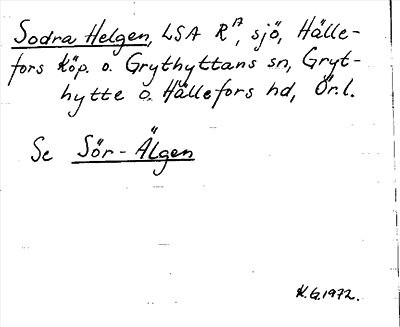 Sodra Helgen, LSA R¹⁷, sjö, Hälle-
fors köp. o. Grythyttans sn, Gryt-
hytte o. Hällefors hd, Ör.l.
Se Sör-Älgen
K.G. 1972.